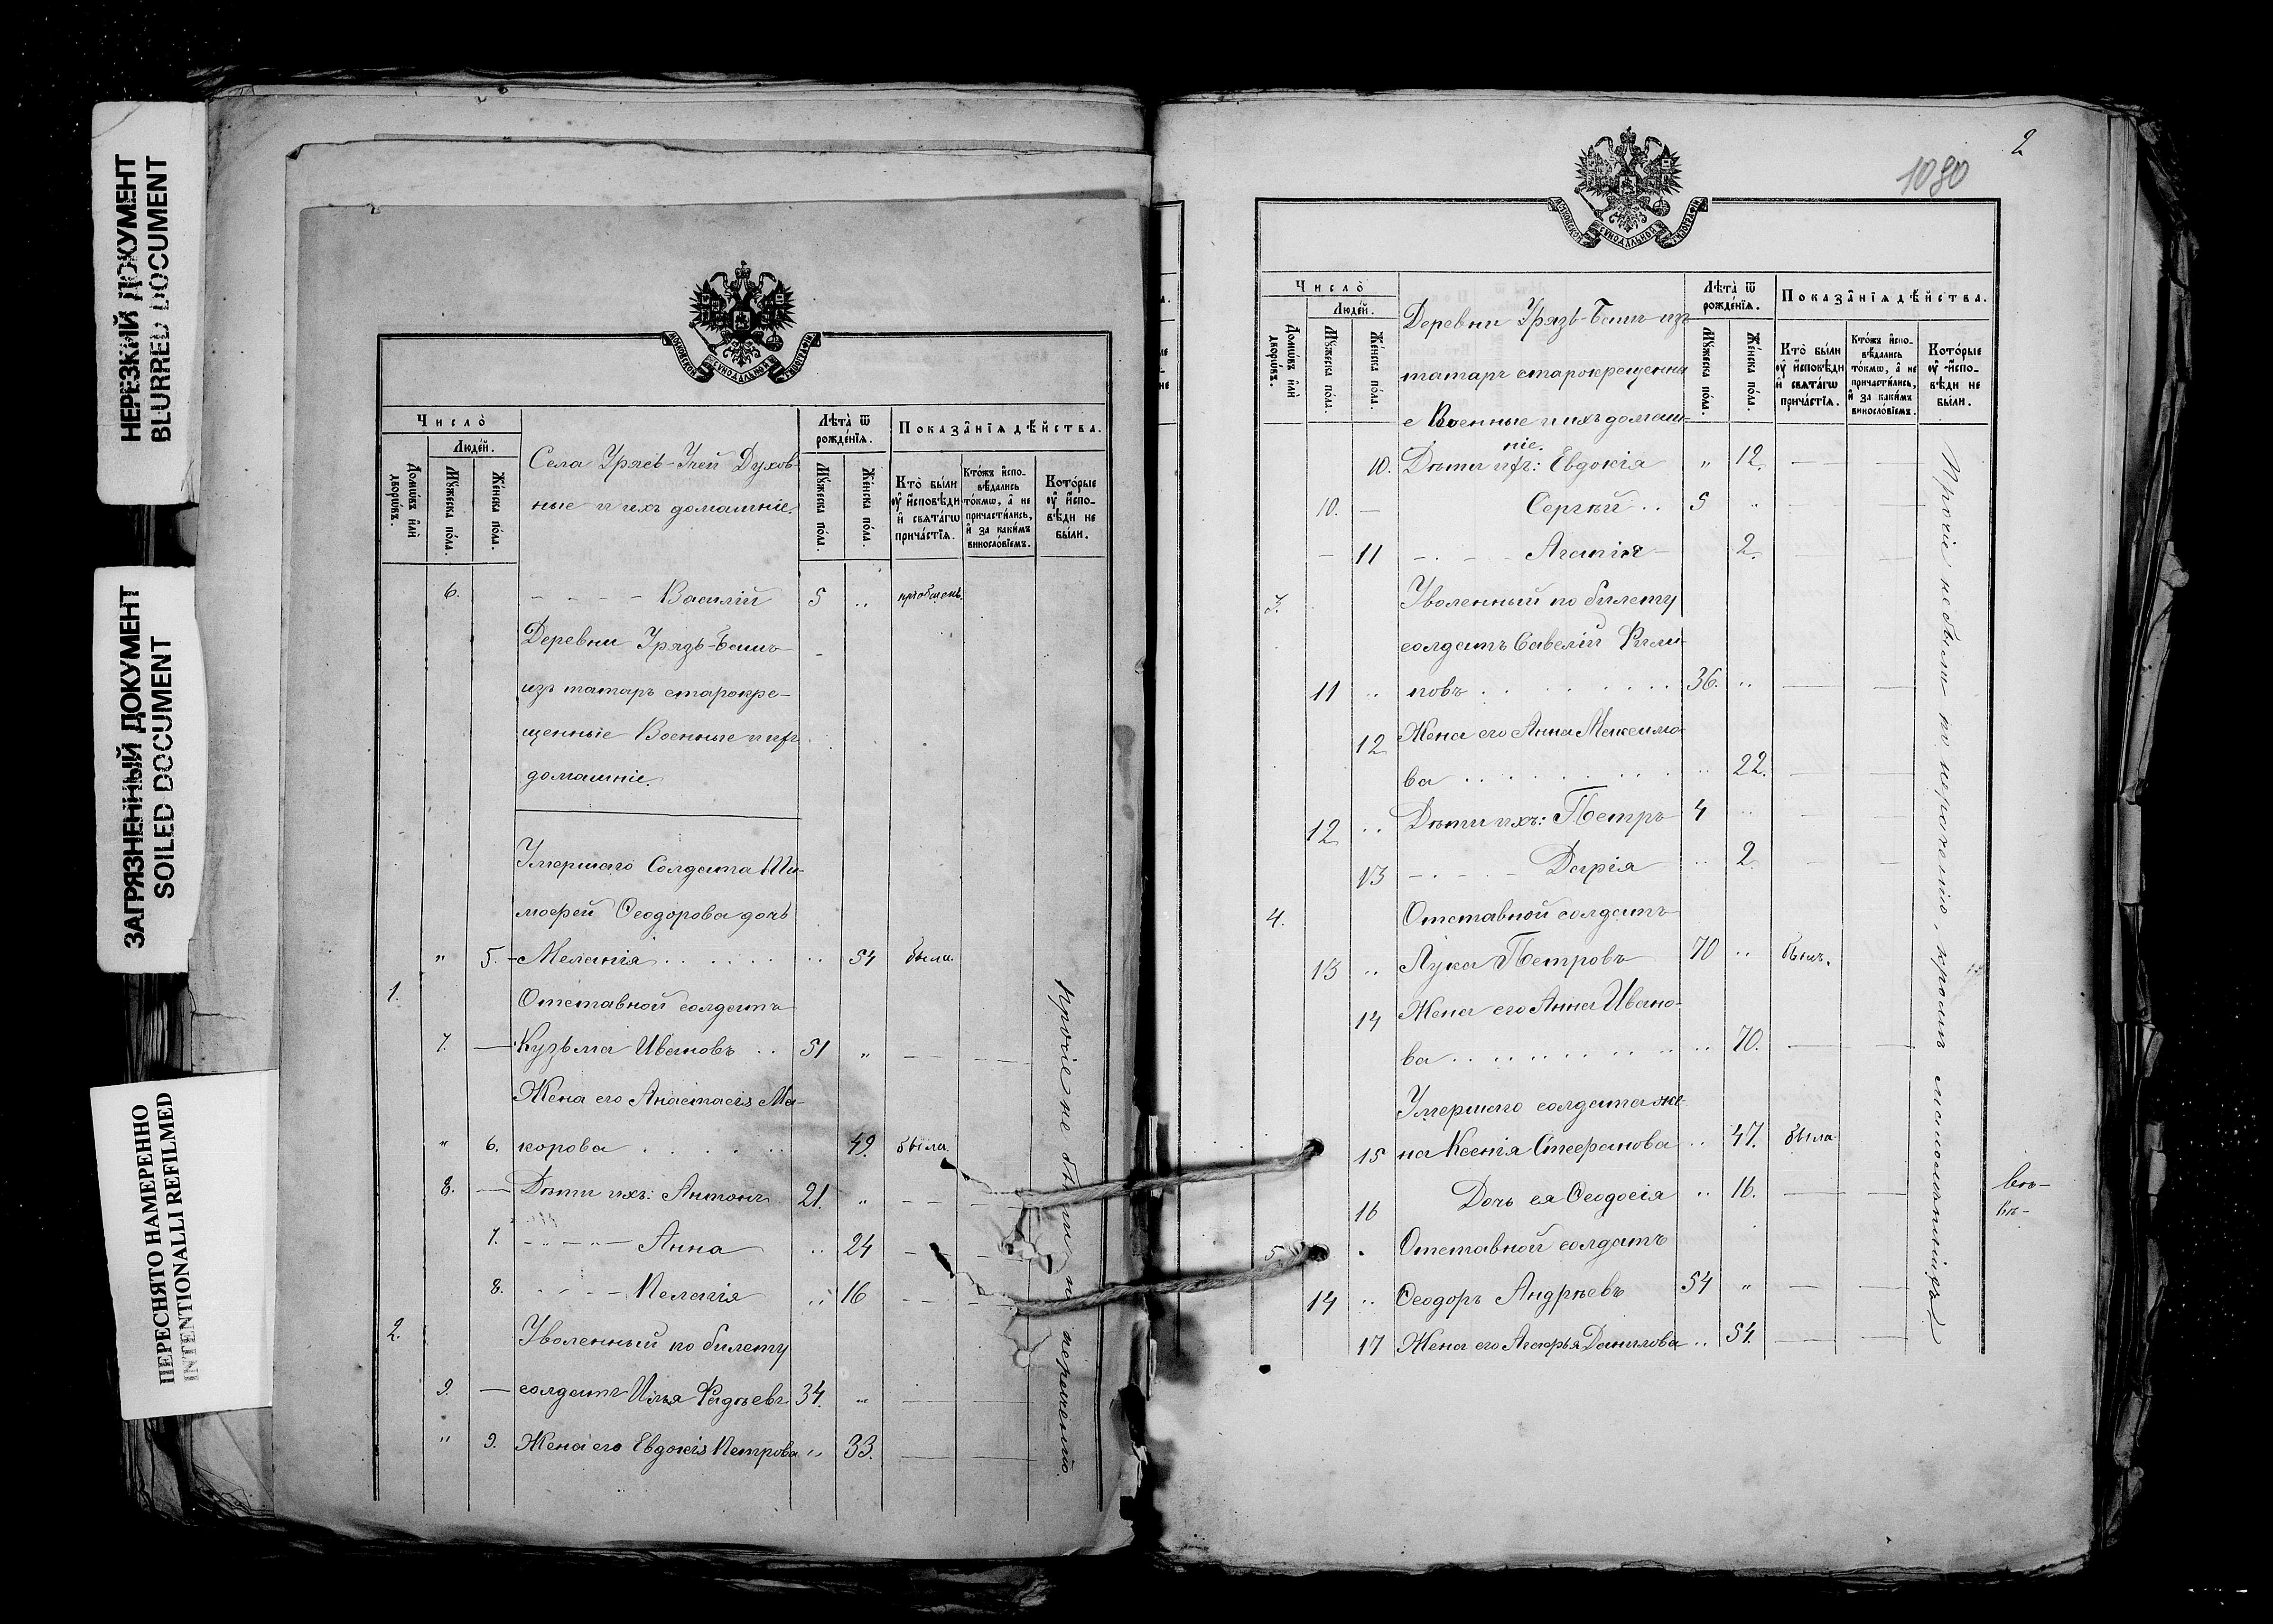 НЕРЕЗКИЙ ДОКУМЕНТ
BLURRED DOCUMENT
ЗАГРЯЗНЕННЫЙ ДОКУМЕНТ
SOILED DOCUMENT
ПЕРЕСНЯТО НАМЕРЕННО
INTENTIONALLI REFILMED
МОСКОВСКОЙ СѴНОДАЛЬНОЙ ТИПОГРАФІИ
Число̀
Людє́й.
Домѡ́въ и҆лѝ дворѡ́въ.
Мꙋ́жеска по́ла.
Же́нска по́ла.
Села Урясь-Учей Духов-
ные и ихъ домашніе.
Лѣта̀ ѿ рожде́нїѧ.
Мꙋ́жеска по́ла.
Же́нска по́ла.
Показа̑нїѧ дѣ́йства.
Кто̀ бы́ли ᲂу҆ и҆сповѣ́ди и҆ свѧта́гѡ прича́стїѧ.
Кто́жъ и҆сповѣ́дались то́кмѡ, а҆ не причасти́лись, и҆ за каки́мъ винословїемъ.
Кото́рые ᲂу҆ и҆сповѣ́ди не бы́ли.
6. - - - - Василій 5 ..
Деревни Урязь-Башъ
изъ татаръ старокре-
щенные Военные и ихъ
домашніе.
Умершаго Солдата Ти-
мофей Ѳеодорова дочь
" 5. Меланія . . . . . . .. 54 была.
1. Отставной солдатъ
7. — Кузьма Ивановъ .. 51 " — —
Жена его Анастасія Ма-
" 6. корова . . . . . . 49. была.
8. — Дѣти ихъ: Антонъ 21. " — —
7. - " - " - Анна .. 24 — —
8. - - - - Пелагія .. 16 — —
2. Уволенный по билету
9. — солдатъ Илья Фадѣевъ 34. " — —
" 9. Жена его Евдокія Петрова " 33. — —
прочіе не были по нерачению.
2
1090
МОСКОВСКОЙ СѴНОДАЛЬНОЙ ТИПОГРАФІИ
Число̀
Людє́й.
Домѡ́въ и҆лѝ дворѡ́въ.
Мꙋ́жеска по́ла.
Же́нска по́ла.
Деревни Урязь-Башъ изъ
татаръ старокрещенны
е Военные и ихъ домаш-
ніе.
Лѣта̀ ѿ рожде́нїѧ.
Мꙋ́жеска по́ла.
Же́нска по́ла.
Показа̑нїѧ дѣ́йства.
Кто̀ бы́ли ᲂу҆ и҆сповѣ́ди и҆ свѧта́гѡ прича́стїѧ.
Кто́жъ и҆сповѣ́дались то́кмѡ, а҆ не причасти́лись, и҆ за каки́мъ винословїемъ.
Кото́рые ᲂу҆ и҆сповѣ́ди не бы́ли.
10. Дѣти ихъ: Евдокія " 12. — —
10. — Сергѣй .. 5 .. — —
— 11 - . - - Агапія - 2. — —
3. Уволенный по билету
солдатъ Савелій
11 .. повъ . . . . . . . . . 36. .. — —
12 Жена его Анна Максимо-
ва . . . . . . . . . .. 22. — —
12 .. Дѣти ихъ: Петръ 4 .. — —
13 - . - - - Дарія .. 2. — —
4. Отставной солдатъ
13 .. Лука Петровъ 70 .. былъ.
14 Жена его Анна Ивано-
ва . . . . . . . . . . .. 70. — —
Умершаго солдата же-
15 на Ксенія Стефанова .. 47. была
16 Дочь ея Ѳеодосія .. 16. — —
5 . Отставной солдатъ
14 .. Ѳеодоръ Андрѣевъ 54 " — —
17 Жена его Агафья Данилова .. 54. — —
Прочіе не были по нерачению, кромѣ малолѣтнихъ